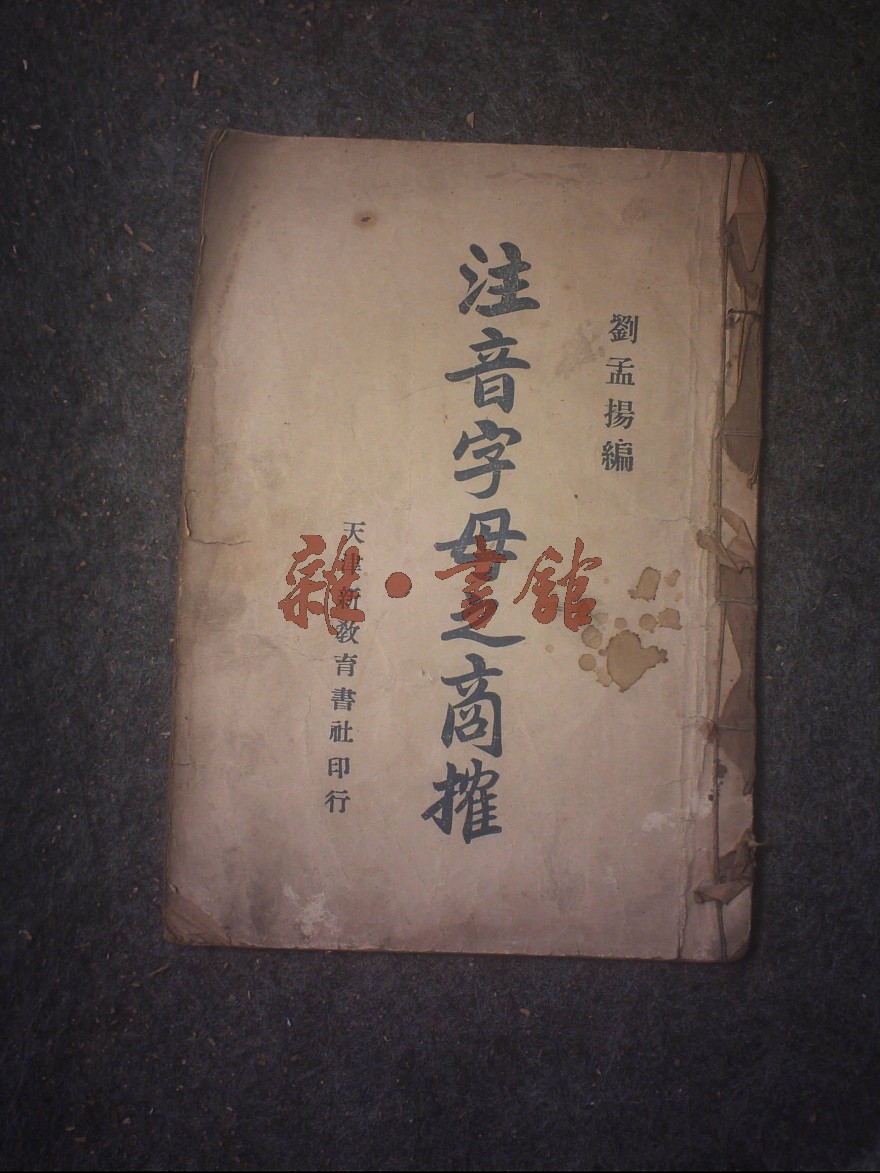 劉孟揚編
注音字母之商搉
天津新教育書社印行
雜·書館